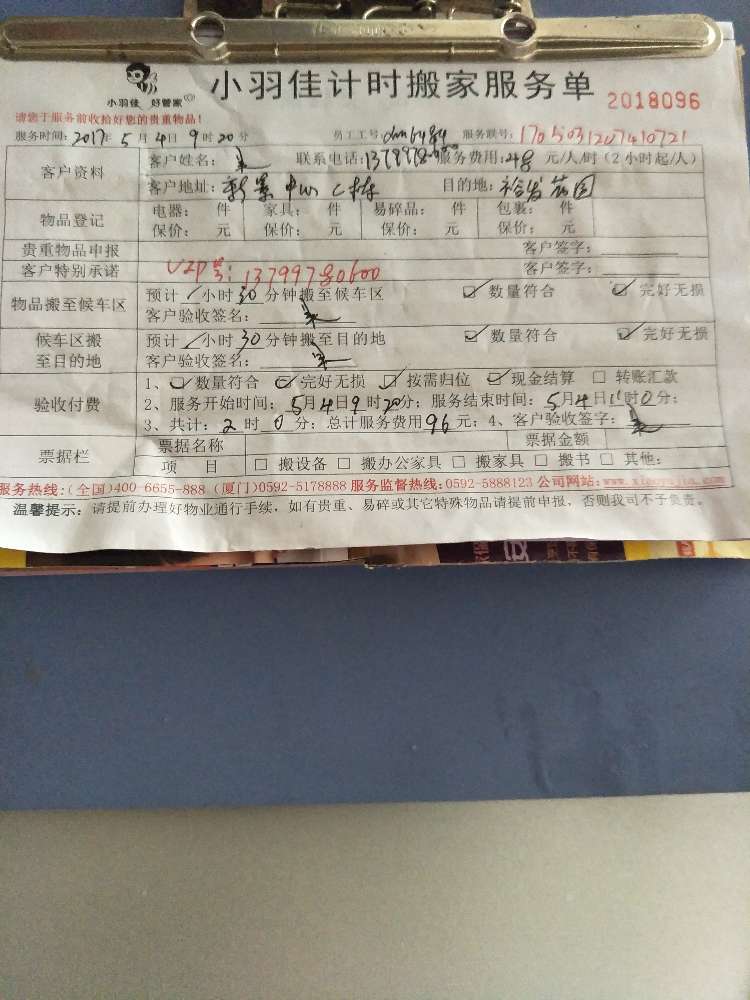 小羽佳 好管家
小羽佳计时搬家服务单 2018096
请您于服务前收拾好您的贵重物品!
服务时间: 2017年 5 月 4 日 9 时 20 分 员工工号: 服务联号: 1705031207410721
客户资料
客户姓名: 联系电话: 服务费用: 48 元/人/时 (2小时起/人)
客户地址: 新景中心C栋 目的地: 裕发花园
物品登记
电器: 件 家具: 件 易碎品: 件 包裹: 件
保价: 元 保价: 元 保价: 元 保价: 元
贵重物品申报 客户签字:
客户特别承诺 VIP号: 13799780600 客户签字:
物品搬至候车区
预计 小时 30 分钟搬至候车区 ☑ 数量符合 ☑ 完好无损
客户验收签名:
候车区搬至目的地
预计 小时 30 分钟搬至目的地 ☑ 数量符合 ☑ 完好无损
客户验收签名:
验收付费
1、☑ 数量符合 ☑ 完好无损 ☑ 按需归位 ☑ 现金结算 □ 转账汇款
2、服务开始时间: 5月4日9时20分; 服务结束时间: 5月4日11时0分;
3、共计: 2 时 0 分; 总计服务费用 96 元; 4、客户验收签字:
票据栏
票据名称 票据金额
项 目 □ 搬设备 □ 搬办公家具 □ 搬家具 □ 搬书 □ 其他:
服务热线:(全国)400-6655-888 (厦门)0592-5178888 服务监督热线:0592-5888123 公司网站:
温馨提示: 请提前办理好物业通行手续, 如有贵重、易碎或其它特殊物品请提前申报, 否则我司不予负责。